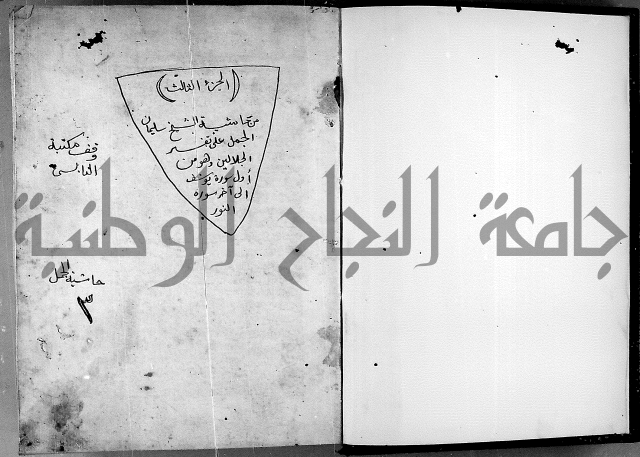 (الجزء الثالث)
من حاشية الشيخ سليمان
الجمل على تفسير
الجلالين وهو من
أول سورة يوسف
الى آخر سورة
النور
وقف مكتبة
حاشية الجمل
٣
جامعة النجاح الوطنية